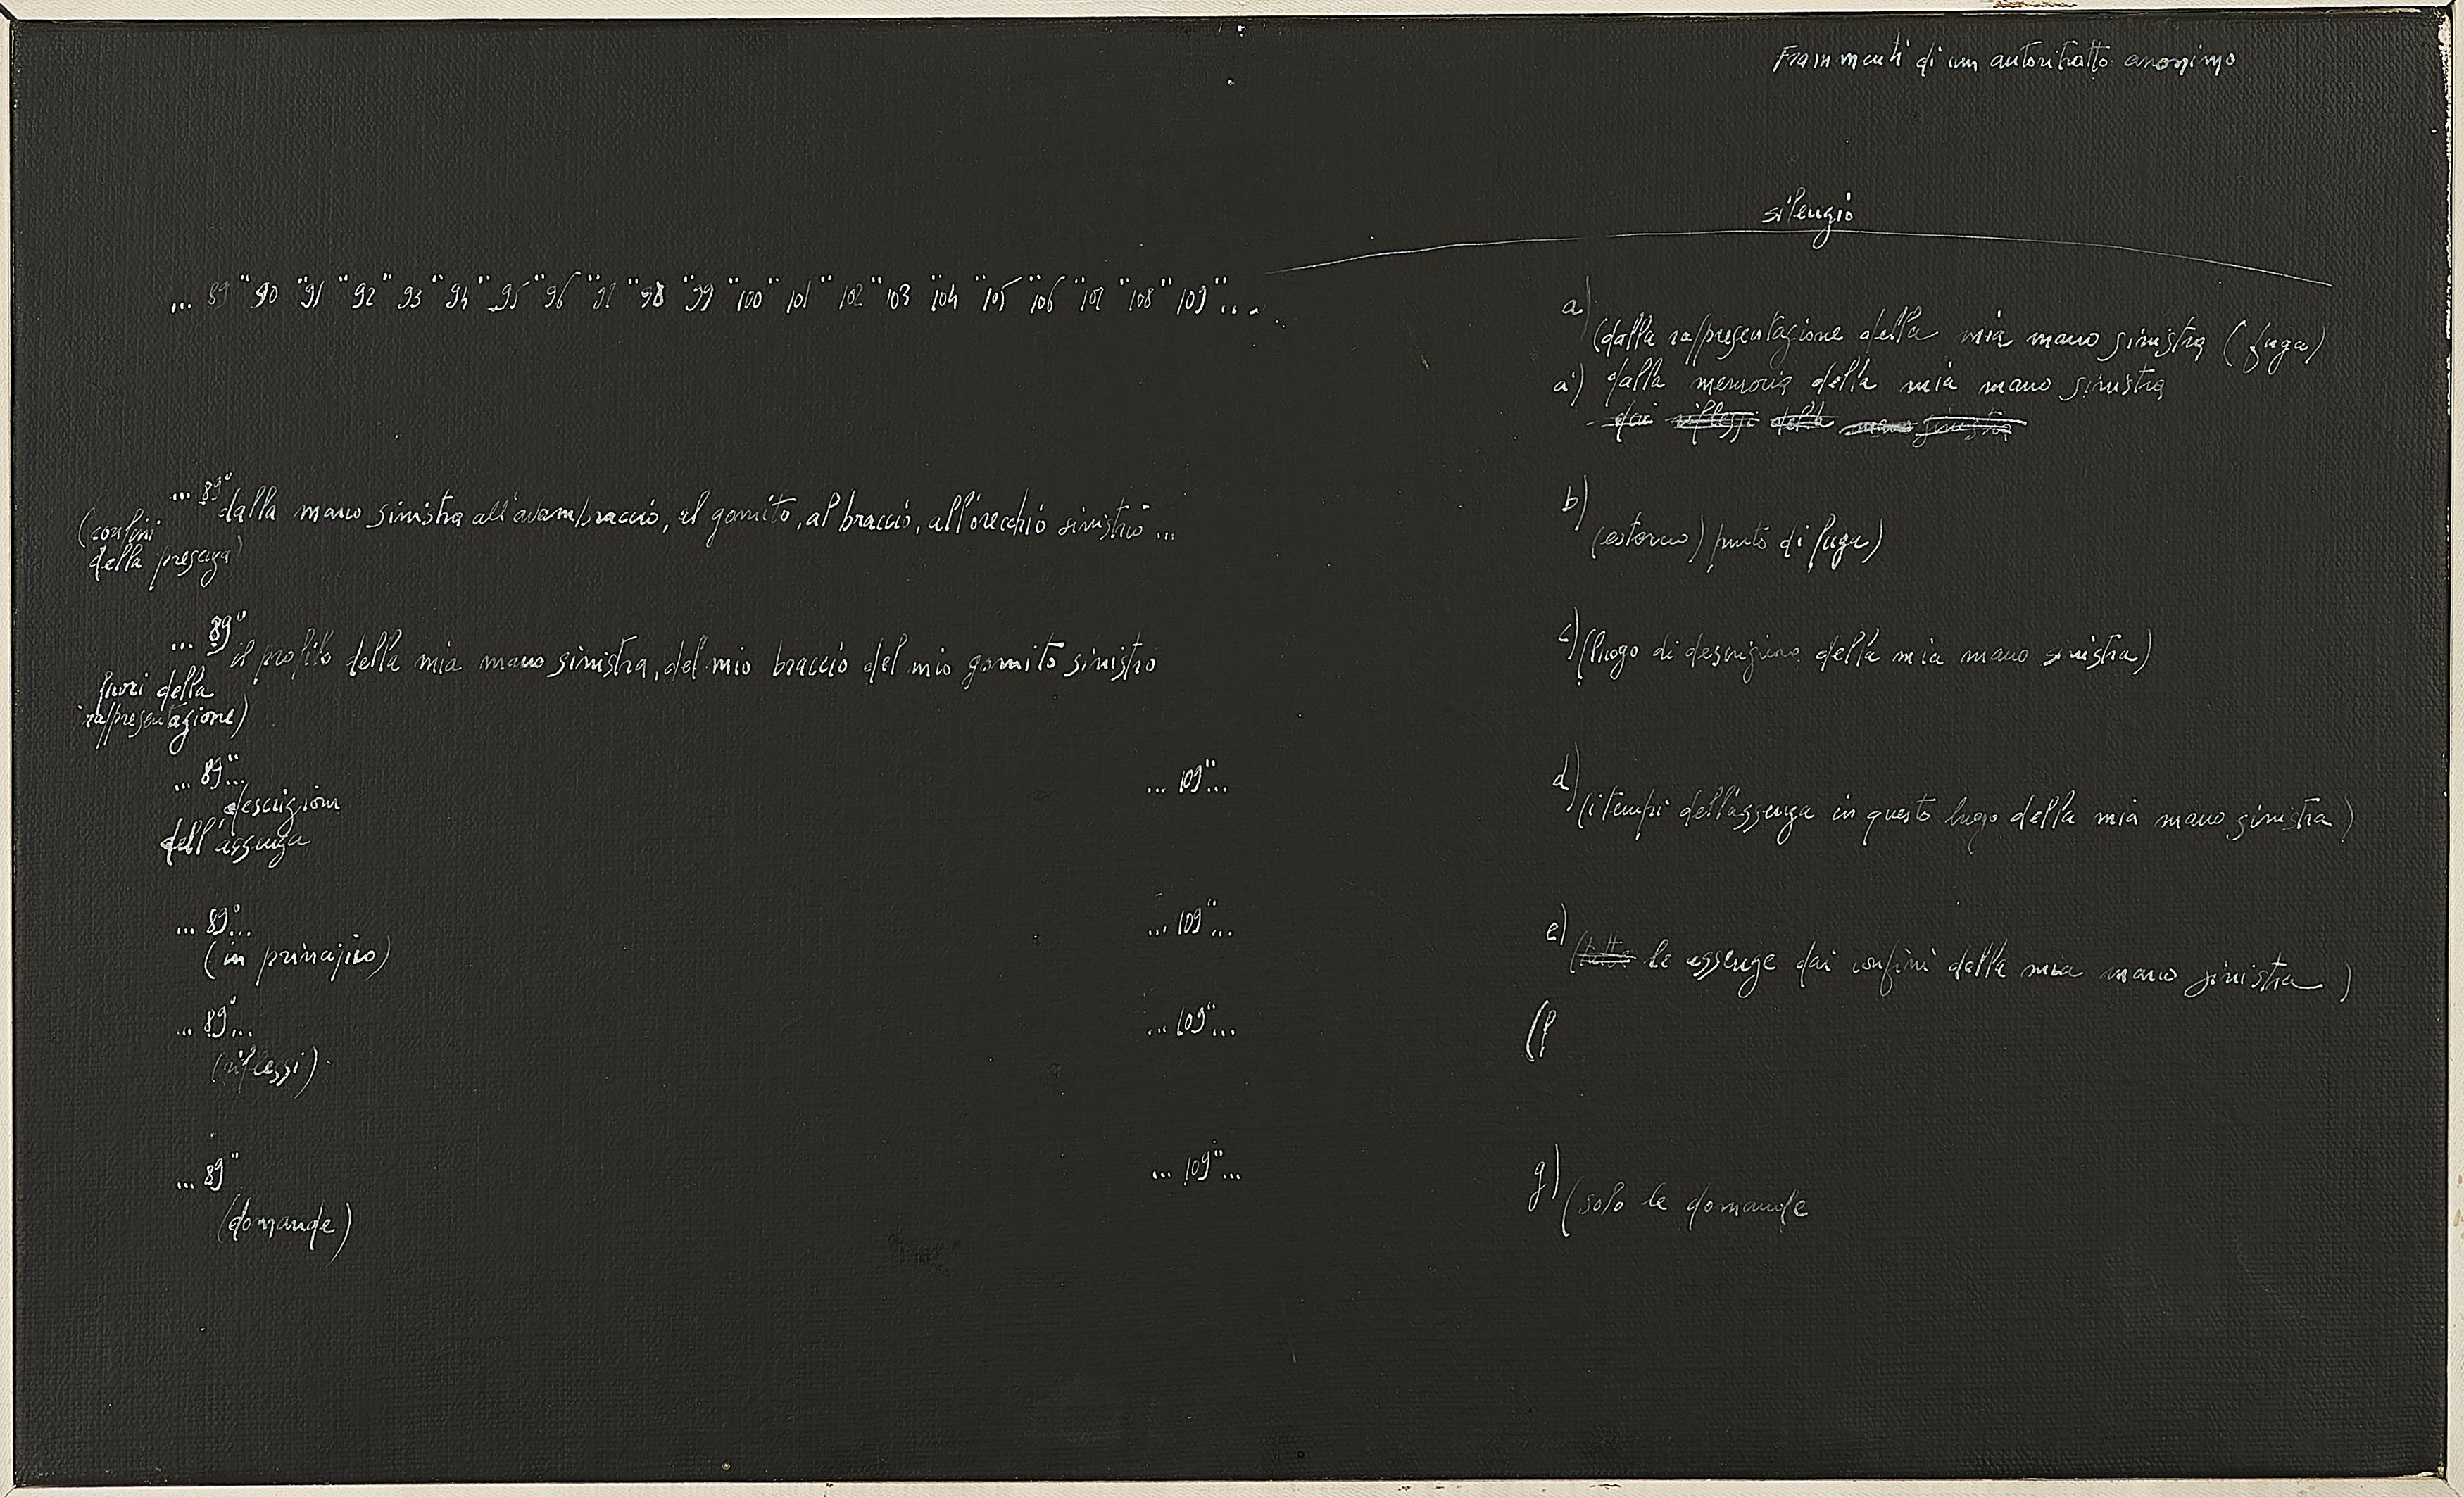 Frammenti di un autoritratto anonimo
silenzio
... 89" 90 "91 "92" 93 "94" 95 "96 "97 "98 "99 "100" 101 "102 "103 "104 "105 "106 "107 "108" 109"....
a) (dalla rappresentazione della mia mano sinistra (fuga)
a') dalla memoria della mia mano sinistra
dai riflessi della mano sinistra
... 89" dalla mano sinistra all'avambraccio, al gomito, al braccio, all'orecchio sinistro ...
(confini
della presenza)
b) (esterno) punto di fuga)
... 89" il profilo della mia mano sinistra, del mio braccio del mio gomito sinistro
fuori della
rappresentazione)
c) (luogo di descrizione della mia mano sinistra)
... 89"... ... 109"...
descrizioni
dell'assenza
d) (i tempi dell'assenza in questo luogo della mia mano sinistra)
... 89"... ... 109"...
(in principio)
e) (tutte le assenze dai confini della mia mano sinistra)
... 89"... ... 109"...
(riflessi)
(f
... 89" ... 109"...
(domande)
g) (solo le domande